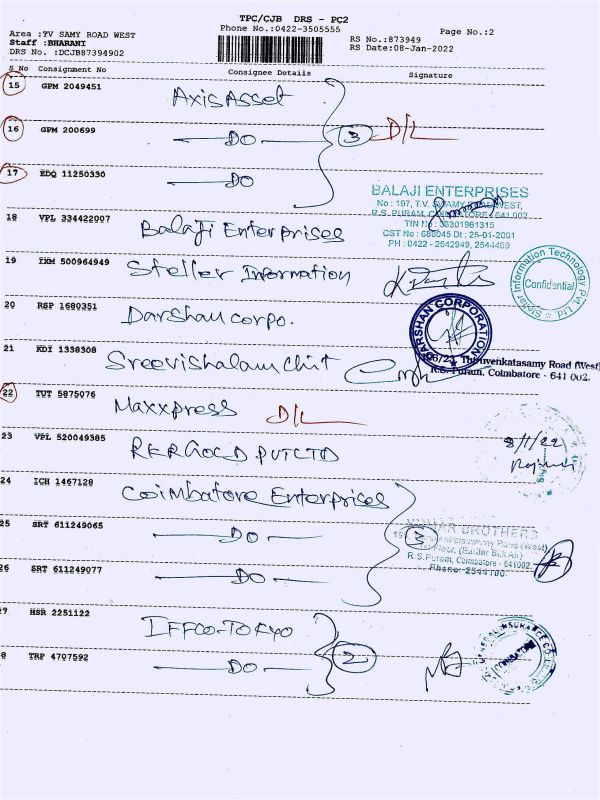 TPC/CJB DRS - PC2
Phone No.:0422-3505555
Page No.:2
Area :TV SAMY ROAD WEST
Staff :BHARANI
DRS No. :DCJB87394902
RS No.:873949
RS Date:08-Jan-2022
S No Consignment No Consignee Details Signature
15 GPM 2049451 Axis Asset
16 GPM 200699 DO 3 D/L
17 EDQ 11250330 DO
BALAJI ENTERPRISES
No : 197, T.V. SWAMY ROAD WEST,
R.S. PURAM, COIMBATORE - 641 002
TIN No : 33301961315
CST No : 686045 Dt : 25-01-2001
PH : 0422 - 2542949, 2544459
18 VPL 334422007 Balaji Enterprises
19 IXM 500964949 Steller Information
Information Technology Pvt. Ltd.
Confidential
20 RSP 1680351 Darshan corpo.
DARSHAN CORPORATION
21 KDI 1338308 Sreevishalam Chit
Thiruvenkatasamy Road (West)
R.S. Puram, Coimbatore - 641 002.
22 TUT 5875076 Maxxpress D/L
23 VPL 520049385 RKRGOLD PVTLTD
8/1/22
24 ICH 1467128 Coimbatore Enterprises
25 SRT 611249065 DO 3
BROTHERS
R.S.Puram, Coimbatore - 641002.
Phone: 2544190
26 SRT 611249077 DO
27 HSR 2251122 IFFCO-TOKYO
2
8 TRP 4707592 DO
INSURANCE CO.
COIMBATORE